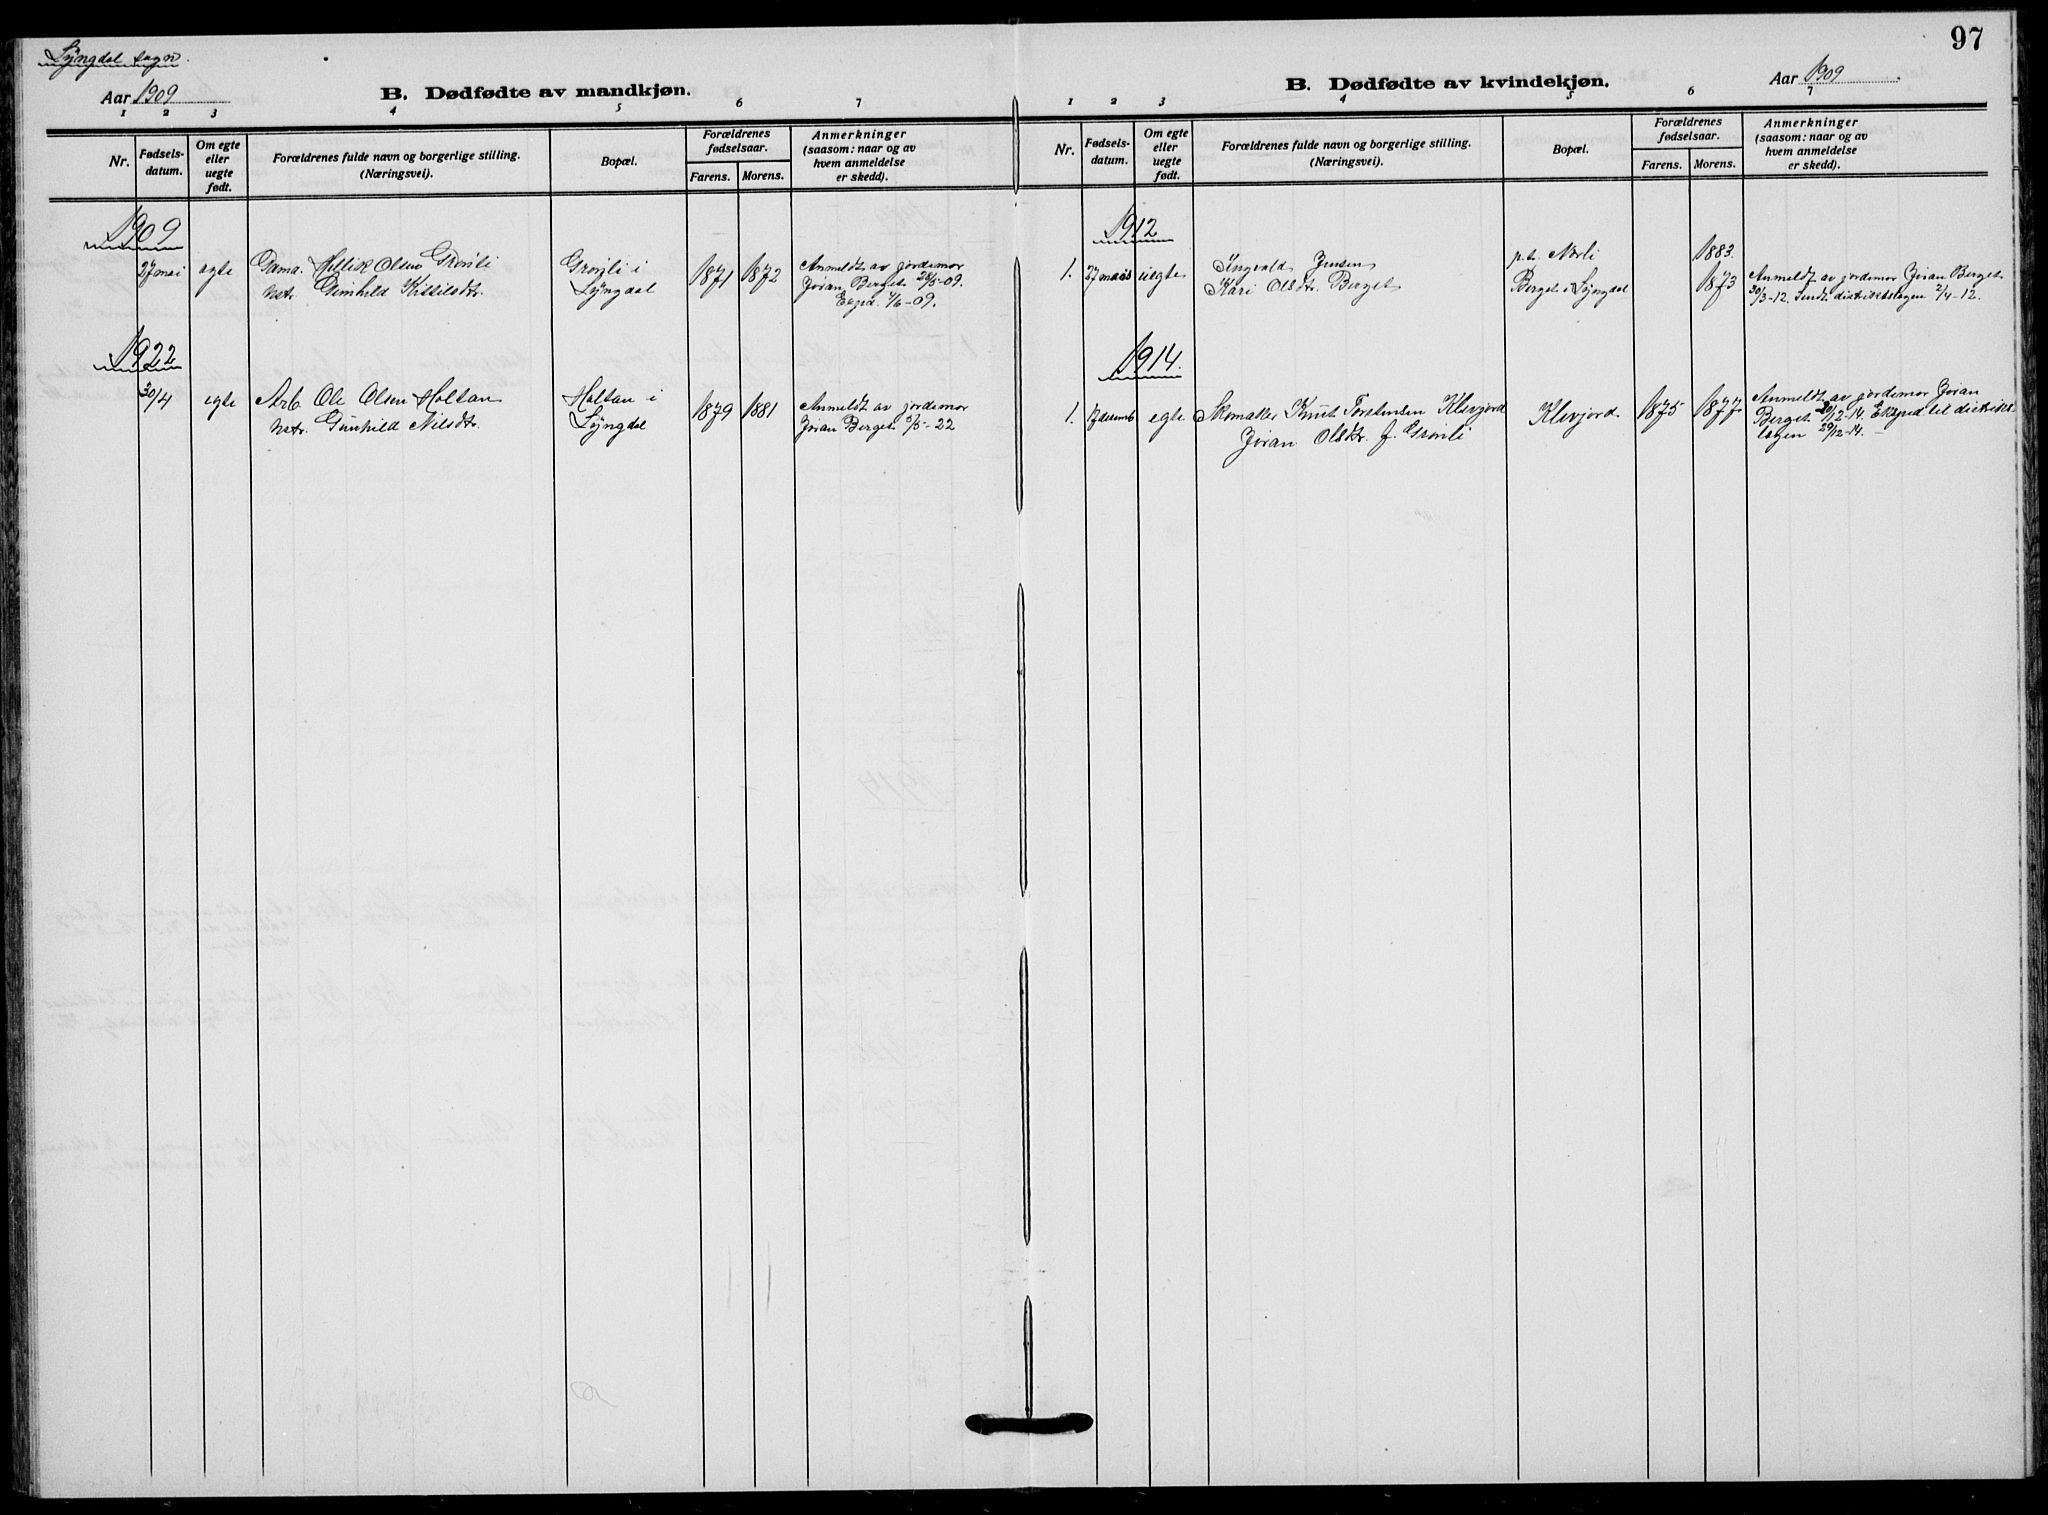 97
Lyngdal sogn.
Aar 1909
B. Dødfødte av mandkjøn.
1 2 3 4 5 6 7
Nr.
Fødsels-
datum.
Om egte
eller
uegte
født.
Forældrenes fulde navn og borgerlige stilling.
(Næringsvei).
Bopæl.
Forældrenes
fødselsaar.
Farens. Morens.
Anmerkninger
(saasom: naar og av
hvem anmeldelse
er skedd).
1909
27 mai egte Olsen Grønli Grønli i 1871 1872 Anmeldt av jordemor
Hstr. Gunhild Kittilsdtr. Lyngdal Jøran Berget 28/5-09.
Exped. 1/6-09.
1922
30/4 egte Arb. Ole Olsen Holtan Holtan i 1879 1881 Anmeldt av jordemor
Hstr. Gunhild Nilsdtr. Lyngdal Jøran Berget /5-22
B. Dødfødte av kvindekjøn.
Aar 1909.
1 2 3 4 5 6 7
Nr.
Fødsels-
datum.
Om egte
eller
uegte
født.
Forældrenes fulde navn og borgerlige stilling.
(Næringsvei).
Bopæl.
Forældrenes
fødselsaar.
Farens. Morens.
Anmerkninger
(saasom: naar og av
hvem anmeldelse
er skedd).
1912
1. 27 mars uegte Ingvald Jensen p.t. Nørli 1883.
Kari Olsdtr. Berget Berget i Lyngdal 1873 Anmeldt av jordemor Jøran Berget
30/3-12. Sendt distriktslægen 2/4-12.
1914.
1. egte Skomaker Knut Torstensen Klevjord Klevjord. 1875 1877 Anmeldt av jordemor Jøran
Jøran Olsdtr. f. Grønli Berget 20/12-14. Eksped til distrikts
lægen 29/12-14.